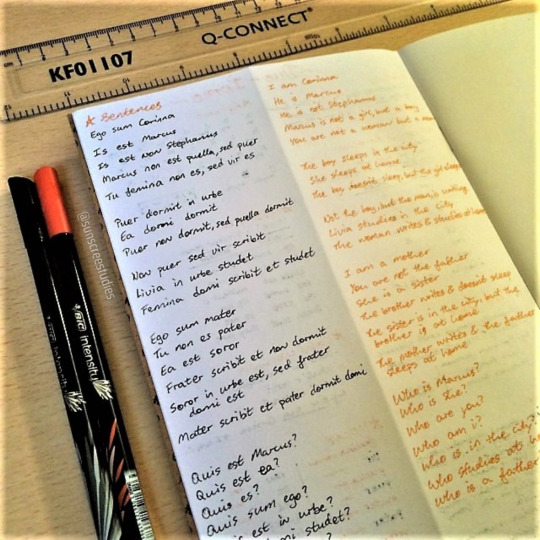 Q-CONNECT®
KF01107
A Sentences
Ego sum Corinna
Is est Marcus
Is est non Stephanus
Marcus non est puella, sed puer
Tu femina non es, sed vir es
Puer dormit in urbe
Ea domi dormit
Puer non dormit, sed puella dormit
Non puer sed vir scribit
Livia in urbe studet
Femina domi scribit et studet
Ego sum mater
Tu non es pater
Ea est soror
Frater scribit et non dormit
Soror in urbe est, sed frater
domi est
Mater scribit et pater dormit domi
Quis est Marcus?
Quis est ea?
Quis es?
Quis sum ego?
est in urbe?
studet?
I am Corinna
He is Marcus
He is not Stephanus
Marcus is not a girl, but a boy
You are not a woman but a
The boy sleeps in the city
She sleeps at home
The boy doesn't sleep, but the girl sleeps
Not the boy, but the man is writing
Livia studies in the city
The woman writes & studies at home
I am a mother
You are not the father
She is a sister
The brother writes & doesn't sleep
The sister is in the city, but the
brother is at home
The mother writes & the father
sleeps at home
Who is Marcus?
Who is she?
Who are you?
Who am i?
Who is in the city?
Who studies at
Who is a father
@sunscreestudies
BIC Intensity
BIC Intensity